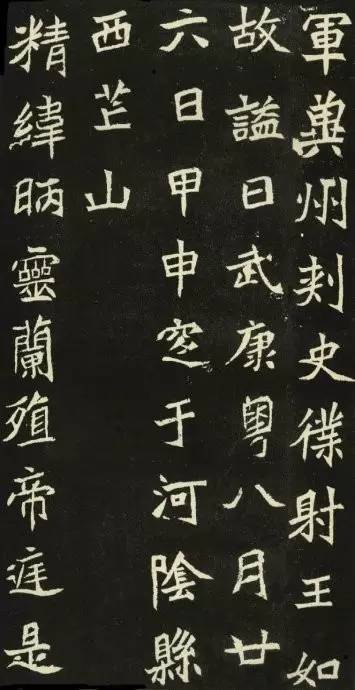 軍冀州刺史僕射王如
故謚曰武康粵八月廿
六日甲申窆于河陰縣
西芒山
精緯昞靈蘭殖帝庭是